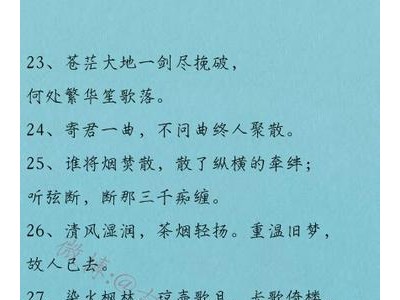 23、苍茫大地一剑尽挽破，
何处繁华笙歌落。
24、寄君一曲，不问曲终人聚散。
25、谁将烟焚散，散了纵横的牵绊；
听弦断，断那三千痴缠。
26、清风湿润，茶烟轻扬。重温旧梦，
故人已去。
27、染火枫林，琼壶歌月，长歌倚楼